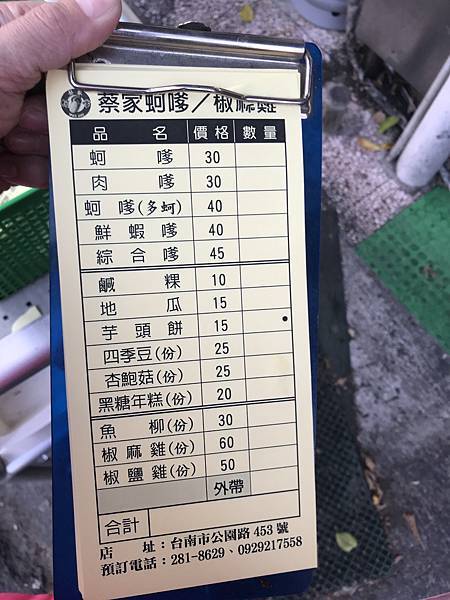 蔡家蚵嗲/椒麻雞
品名 價格 數量
蚵嗲 30
肉嗲 30
蚵嗲(多蚵) 40
鮮蝦嗲 40
綜合嗲 45
鹹粿 10
地瓜 15
芋頭餅 15
四季豆(份) 25
杏鮑菇(份) 25
黑糖年糕(份) 20
魚柳(份) 30
椒麻雞(份) 60
椒鹽雞(份) 50
外帶
合計
店址:台南市公園路453號
預訂電話:281-8629、0929217558